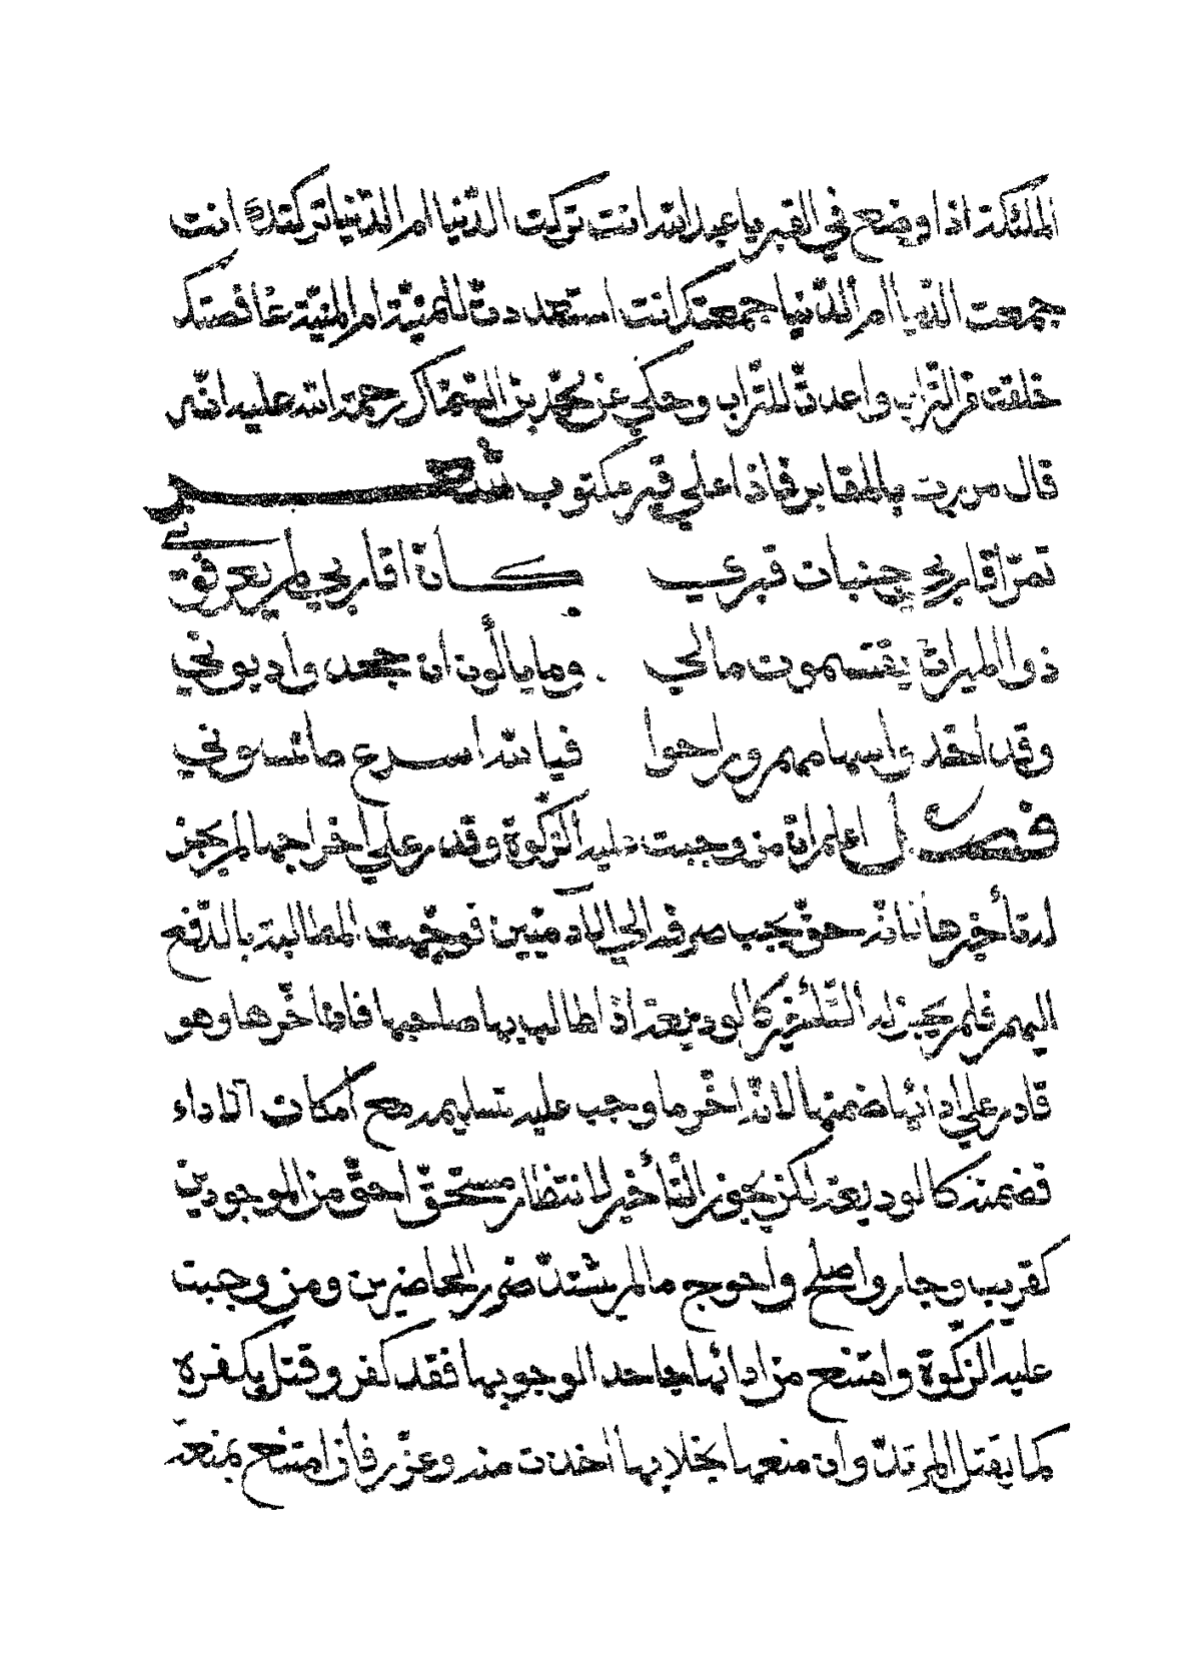 الملئكة اذا وضع في القبر يا عبد الله انت تركت الدّنيا ام الدّنيا تركتك انت
جمعت الدّنيا ام الدّنيا جمعتك انت استعددتّ للمنيّة ام المنيّة غافصتك
خلقت من التّراب واعدتّ للتّراب وحكي عن محمّد بن السّماك رحمة الله عليه انّه
قال مررت بالمقابر فاذا على قبر مكتوب شعر
تمرّ اقاربي جنبات قبري كأنّ اقاربي لم يعرفوني
ذووا الميراث يقتسمون مالي وما يألون ان جحدوا ديوني
وقد اخذوا سهامهم وراحوا فيا لله اسرع ما نسوني
فصل اعلم انّ من وجبت عليه الزّكوة وقدر على اخراجها لم يجز
له تأخيرها فانّه حقّ يجب صرفه الى الآدميّين توجّهت المطالبة بالدّفع
اليهم فلم يجز له التّأخير كالوديعة اذا طالب بها صاحبها فان اخّرها وهو
قادر على ادائها ضمنها لانّه اخّر ما وجب عليه تسليمه مع امكان الاداء
فضمنه كالوديعة لكن يجوز التّأخير لانتظار مستحقّ احقّ من الموجودين
كقريب وجار واصلح واحوج ما لم يشتدّ ضرر الحاضرين ومن وجبت
عليه الزّكوة وامتنع من ادائها جاحدا لوجوبها فقد كفر وقتل بكفره
كما يقتل المرتدّ وان منعها بخلا بها اخذت منه وعزّر فان امتنع بمنعة